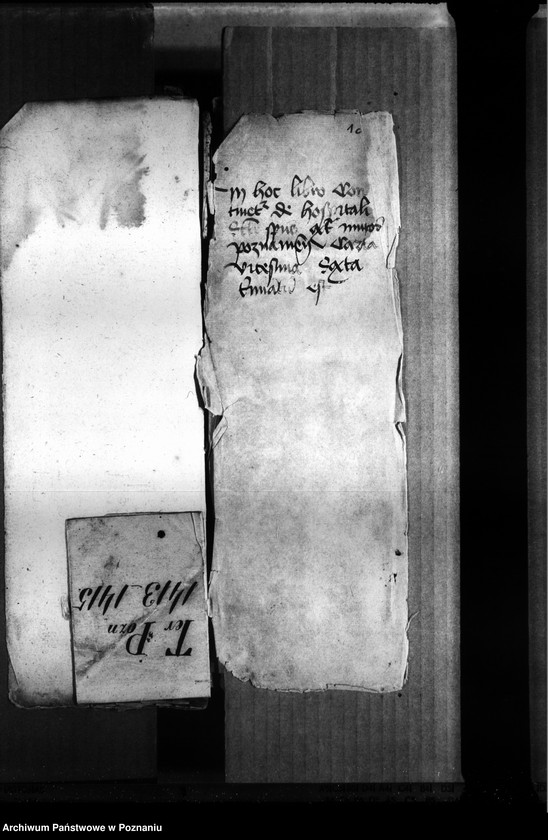 1a
In hoc libro Con
tinet de hospitali
Sti spus ext muros
poznanien Carta
vicesima Sexta
est
Ter Pozn
1413–1415
Archiwum Państwowe w Poznaniu